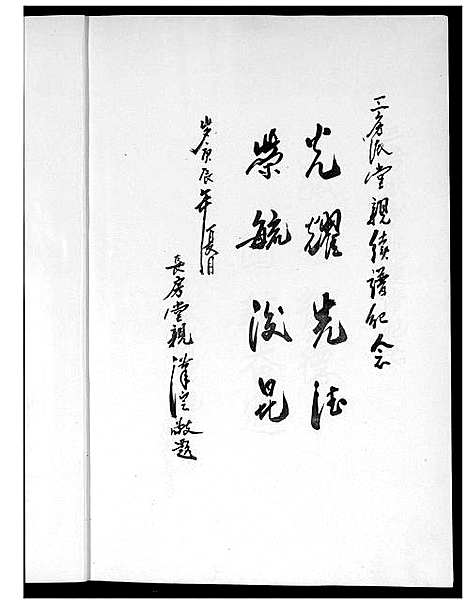 三房派堂親續譜紀念
光耀先德
榮毓後昆
歲庚辰年夏月
長房堂親敬題